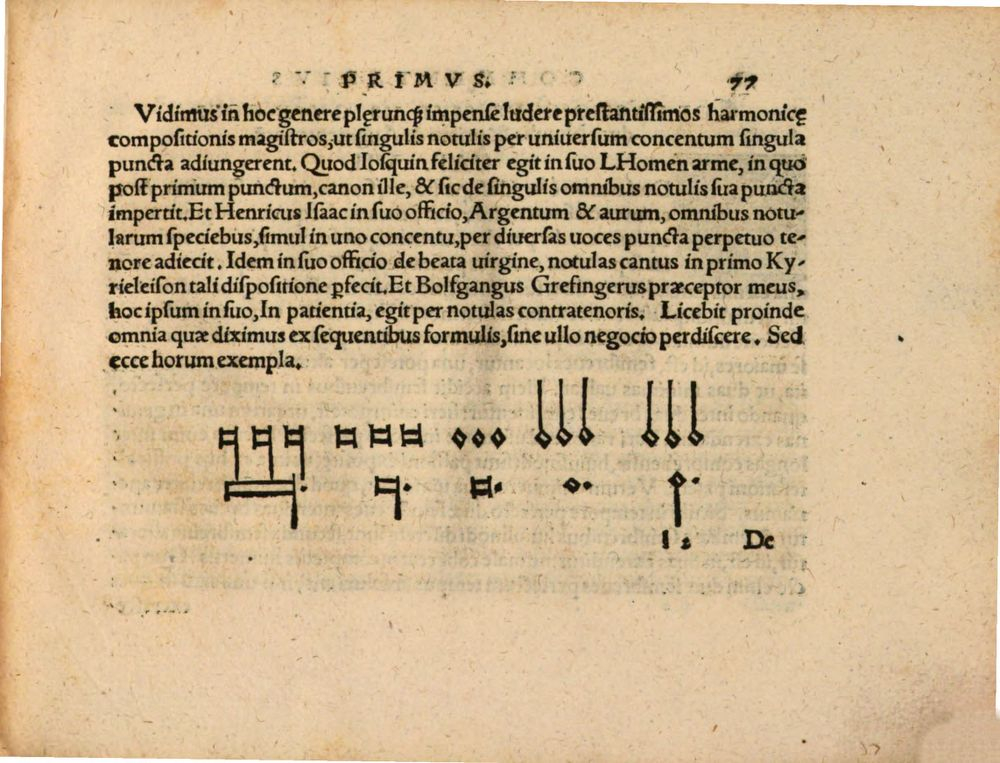 PRIMVS. 77
Vidimus in hoc genere plęrunqꝫ impense ludere prestantissimos harmonicę
compositionis magistros, ut singulis notulis per uniuersum concentum singula
puncta adiungerent. Quod Iosquin feliciter egit in suo LHomen arme, in quo
post primum punctum, canon ille, & sic de singulis omnibus notulis sua puncta
impertit. Et Henricus Isaac in suo officio, Argentum & aurum, omnibus notu-
larum speciebus, simul in uno concentu, per diuersas uoces puncta perpetuo te-
nore adiecit. Idem in suo officio de beata uirgine, notulas cantus in primo Ky-
rieleison tali dispositione ꝑfecit. Et Bolfgangus Grefingerus præceptor meus,
hoc ipsum in suo, In patientia, egit per notulas contratenoris. Licebit proinde
omnia quæ diximus ex sequentibus formulis, sine ullo negocio perdiscere. Sed
ecce horum exempla.
De